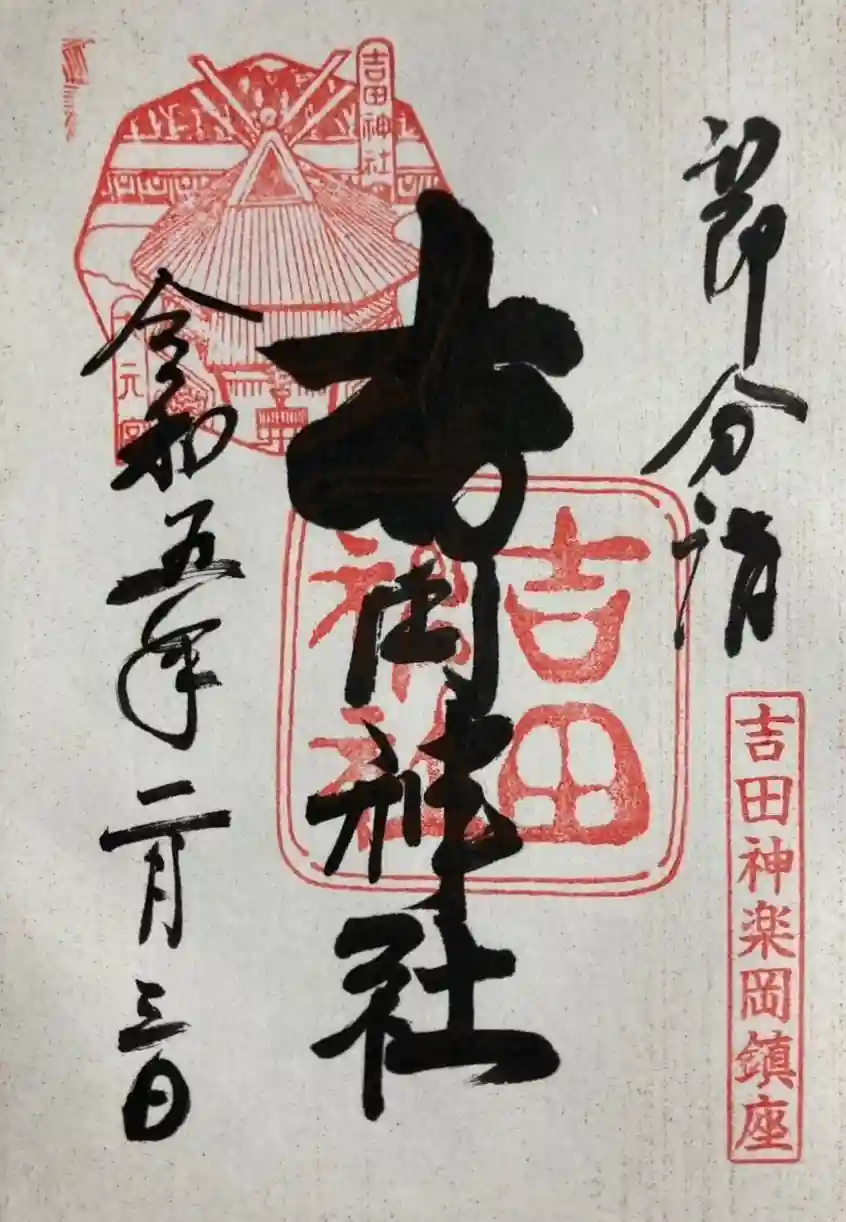 節分詣
吉田神楽岡鎮座
吉田神社
吉田
神社
吉田神社
元宮
令和五年二月三日